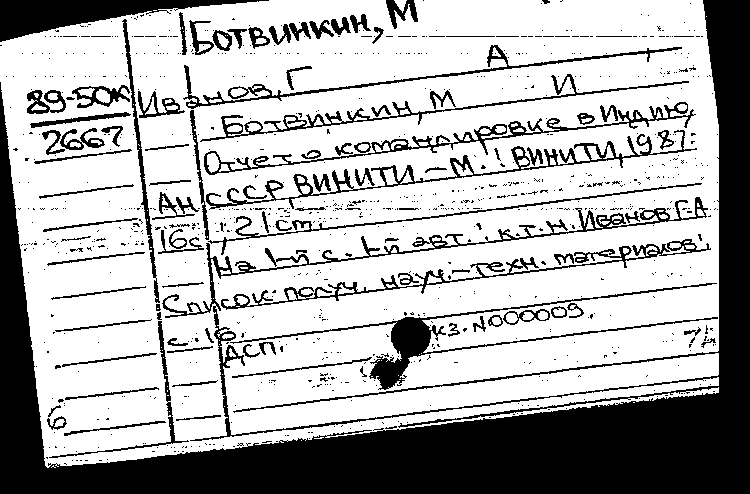 Ботвинкин, М
89-50к
2667
Иванов, Г А
Ботвинкин, М И
Отчет о командировке в Индию,
Ан СССР, ВИНИТИ. – М.: ВИНИТИ, 1987.
16с.; 21 ст.
На 1-й с. 1-й авт.: к.т.н. Иванов Г.А
Список получ. науч.-техн. материалов:
с. 16.
ДСП. кз. N000009.
6